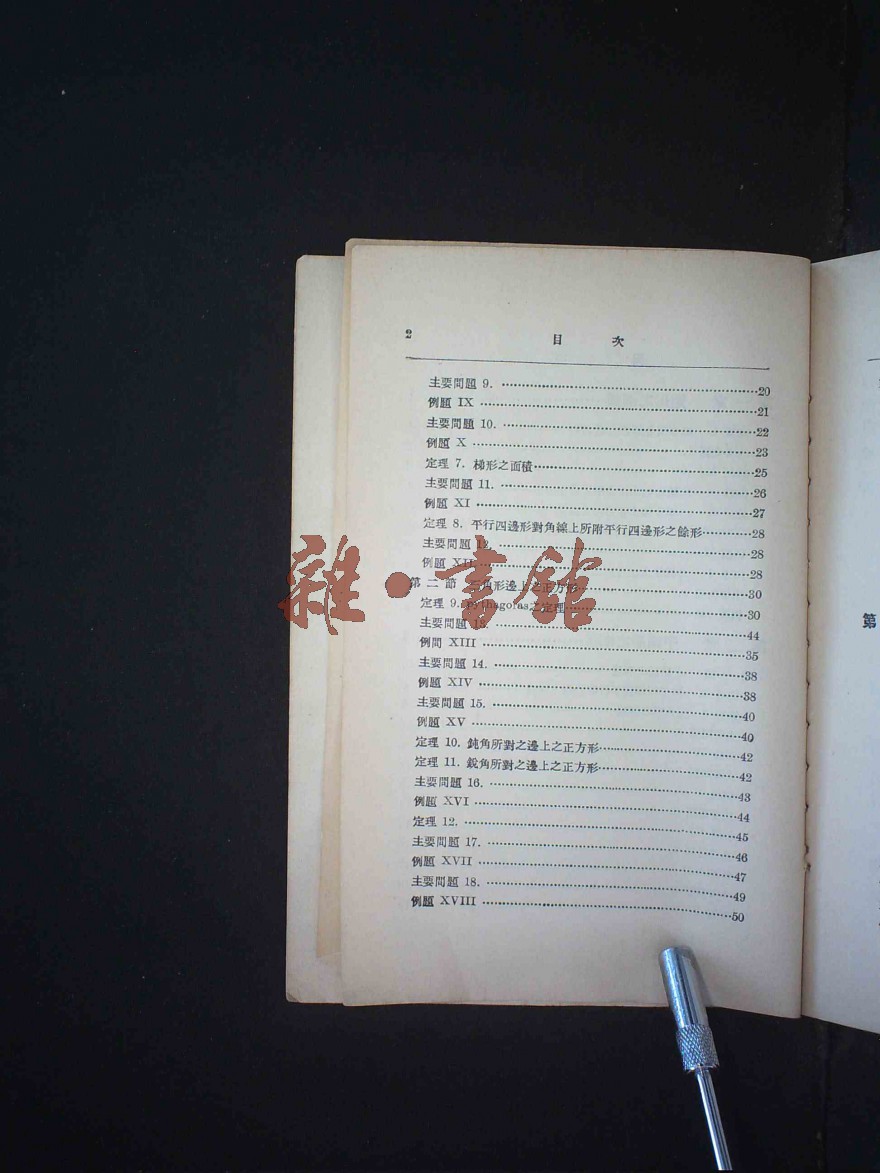 2 目次
主要問題 9. 20
例題 IX 21
主要問題 10. 22
例題 X 23
定理 7. 梯形之面積 25
主要問題 11. 26
例題 XI 27
定理 8. 平行四邊形對角線上所附平行四邊形之餘形 28
主要問題 12. 28
例題 XII 28
第二節 三角形邊上之正方形 30
定理 9. Pythagoras之定理 30
主要問題 13. 44
例問 XIII 35
主要問題 14. 38
例題 XIV 38
主要問題 15. 40
例題 XV 40
定理 10. 鈍角所對之邊上之正方形 42
定理 11. 銳角所對之邊上之正方形 42
主要問題 16. 43
例題 XVI 44
定理 12. 45
主要問題 17. 46
例題 XVII 47
主要問題 18. 49
例題 XVIII 50
雜·書館
第